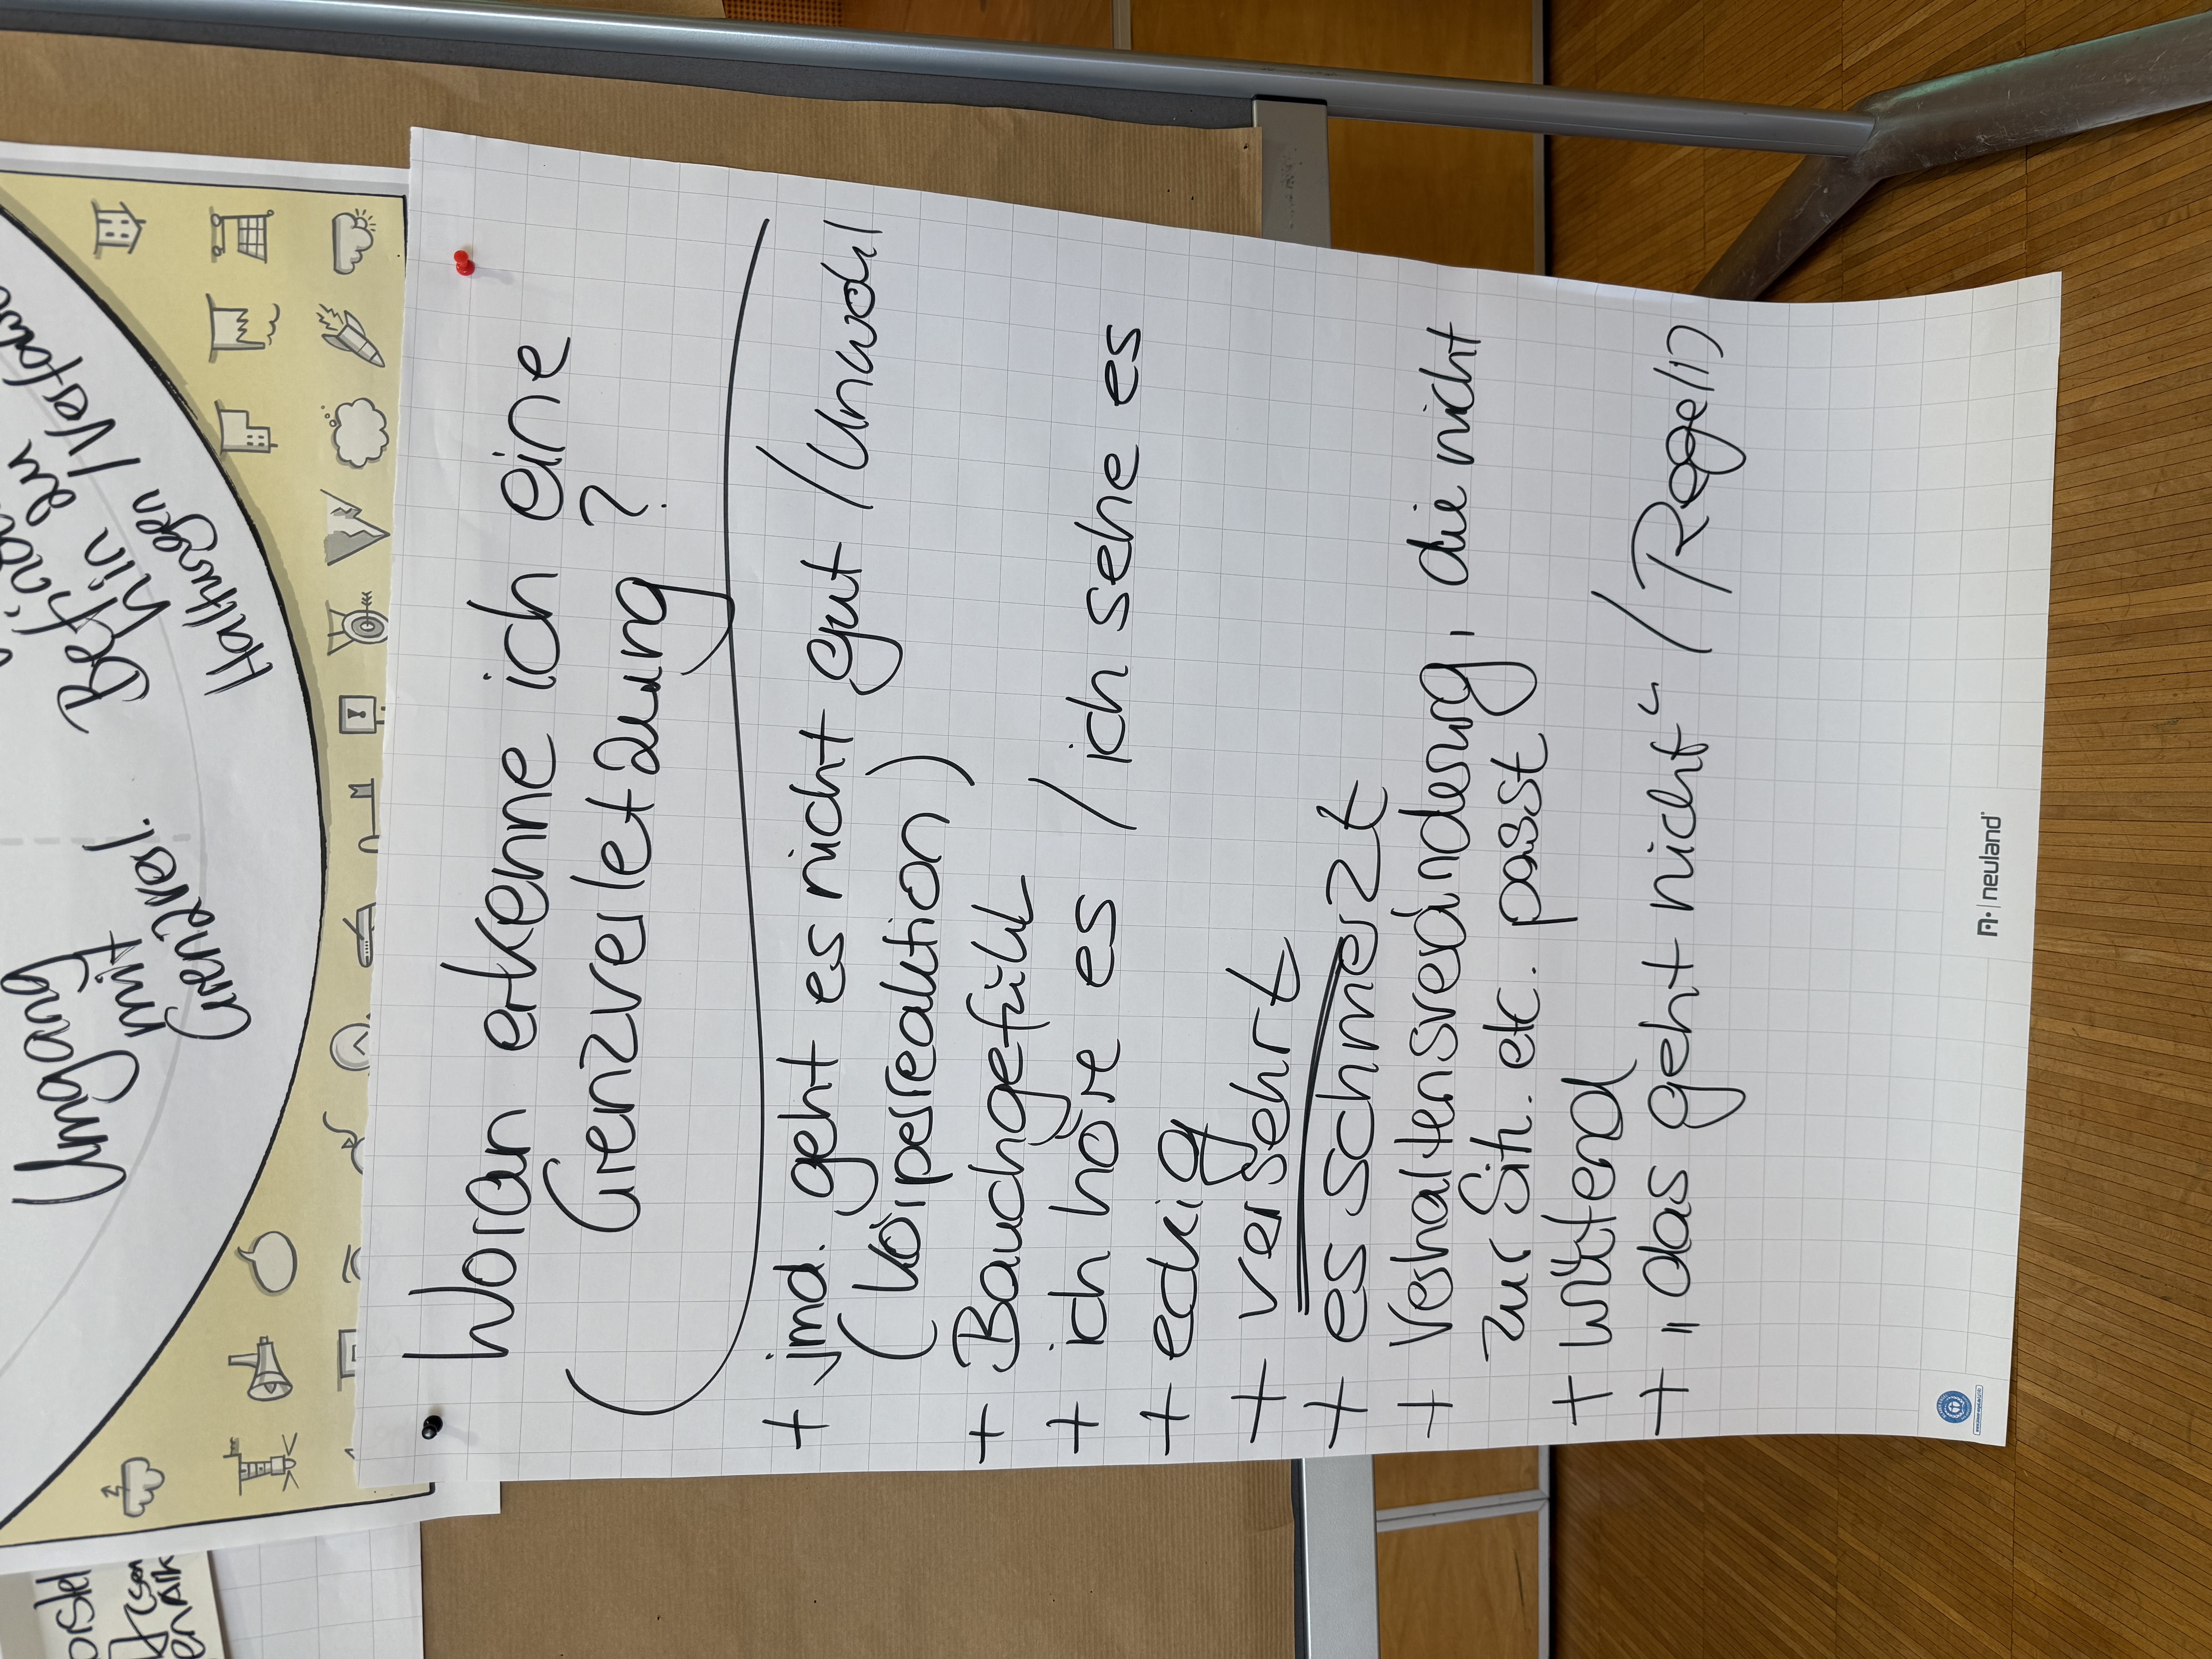 Umgang
mit
Grenzverl.
Befin
hin zu
Haltungen / Verfass
Woran erkenne ich eine
Grenzverletzung ?
+ jmd. geht es nicht gut / Unwohl
(Körperreaktion)
+ Bauchgefühl
+ ich höre es / ich sehe es
+ eckig
+ versehrt
+ es schmerzt
+ Verhaltensveränderung, die nicht
zur Sit. etc. passt
+ wütend
+ „das geht nicht“ / Regel(n)
neuland